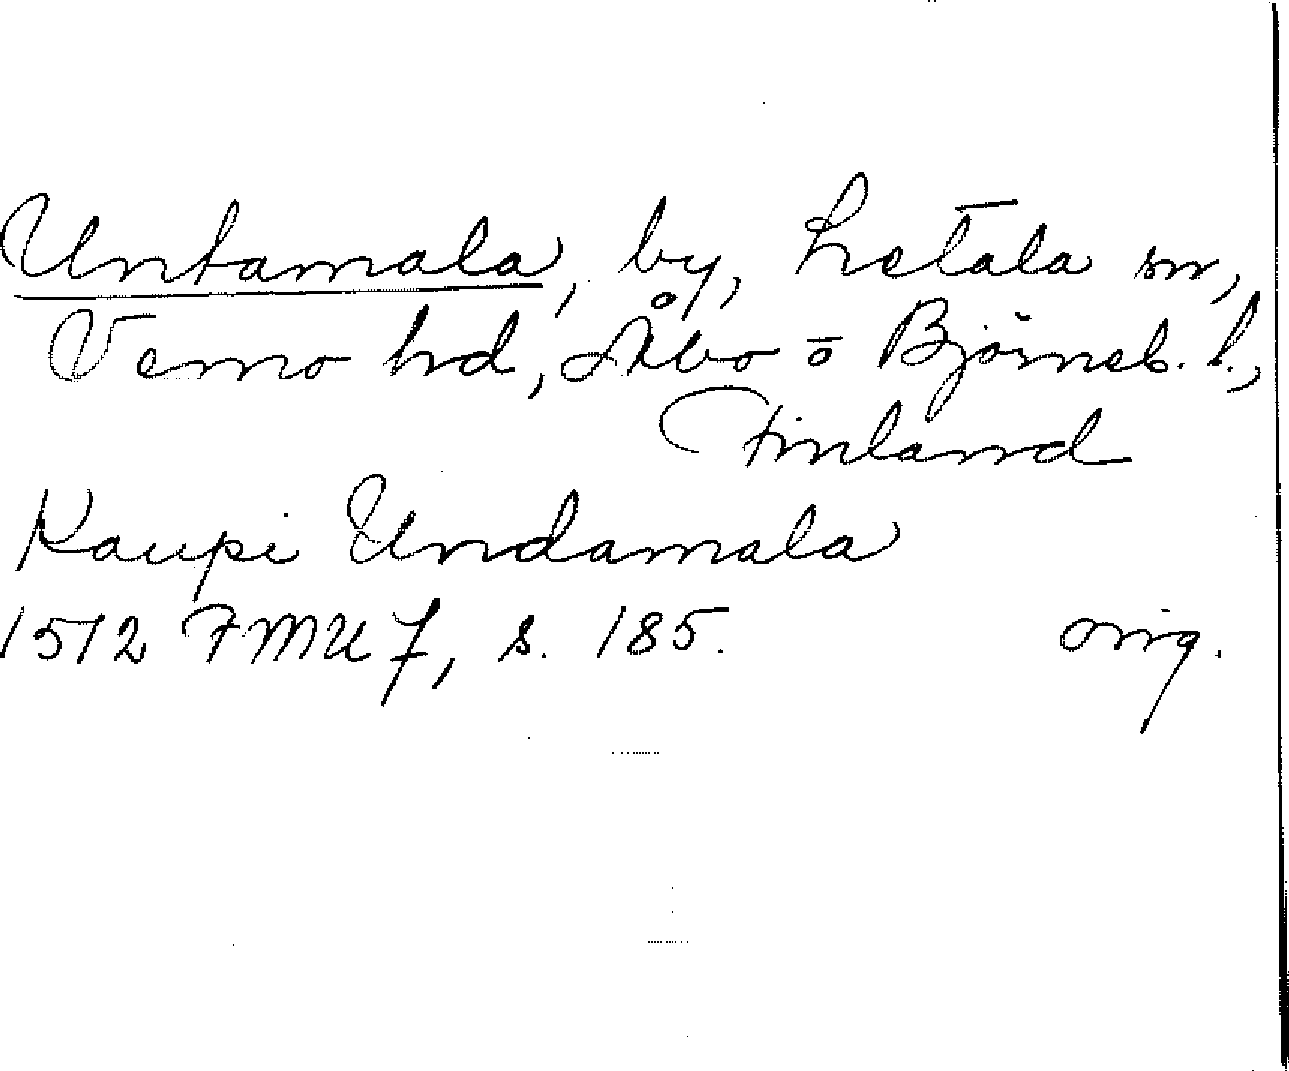 Untamala, by, Letala sn,
Vemo hd, Åbo o Björneb. l.,
Finland
Kaupi Undamala
1512 FMU 7, s. 185.
orig.